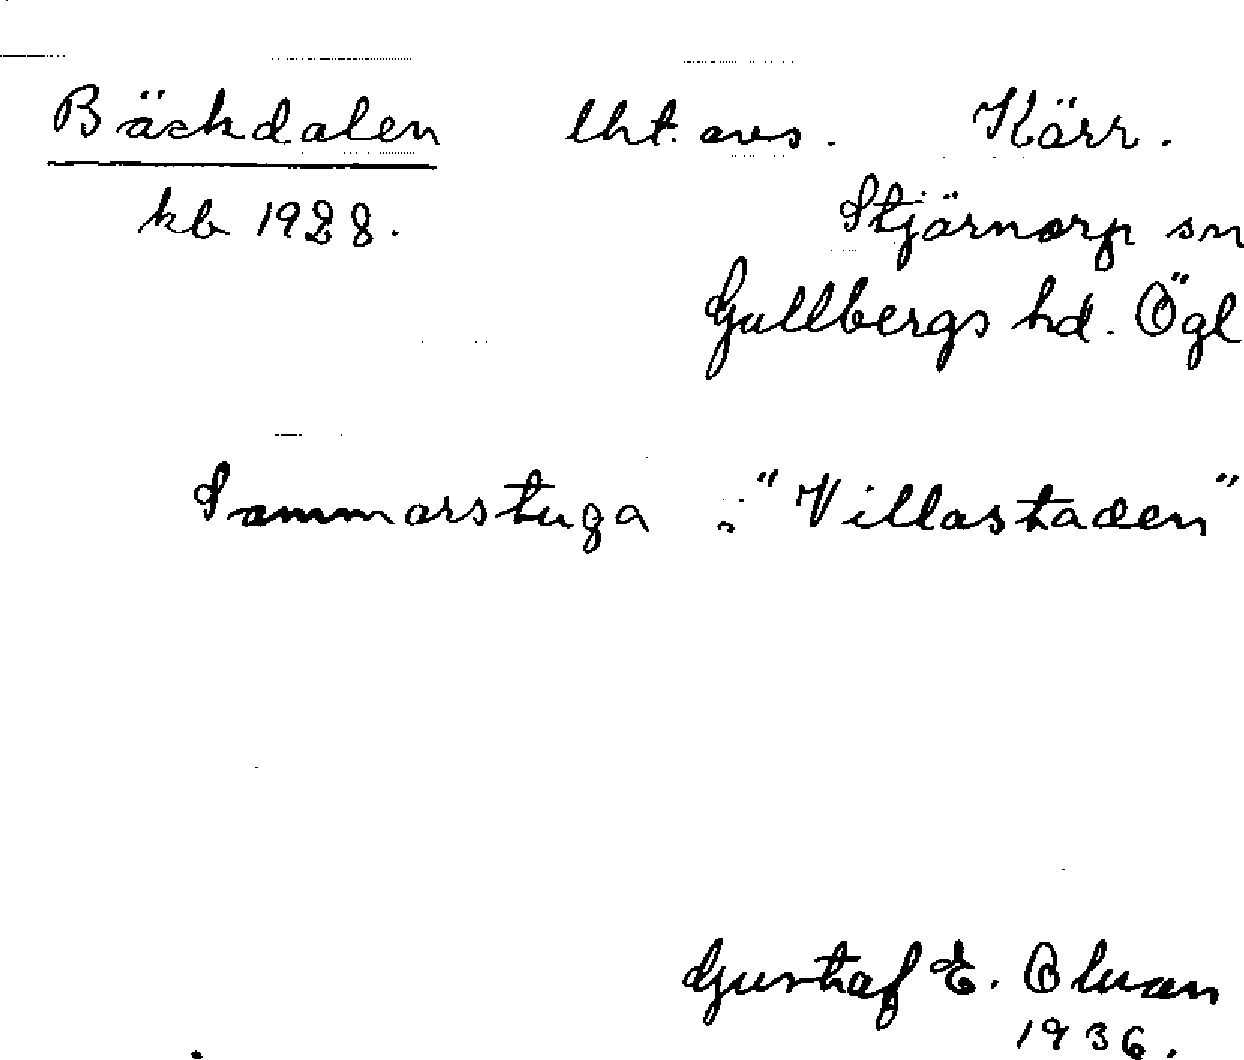 Bäckdalen lht. avs. Kärr.
kb 1928. Stjärnorp sn
Gullbergs hd. Ögl
Sommarstuga i "Villastaden"
Gustaf E.
1936.